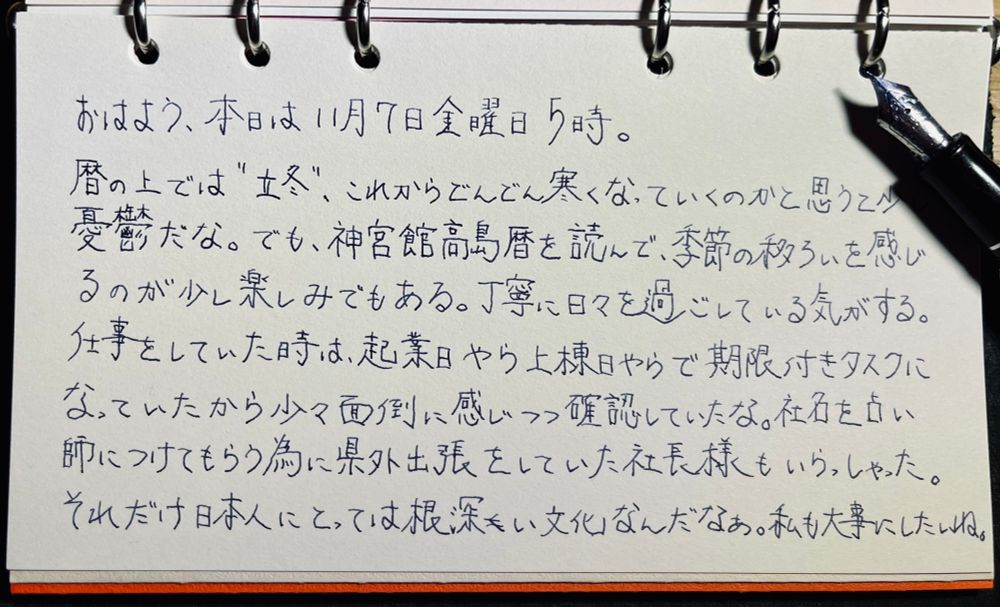 おはよう、本日は11月7日金曜日5時。
暦の上では"立冬"、これからどんどん寒くなっていくのかと思うと少
憂鬱だな。でも、神宮館高島暦を読んで、季節の移ろいを感じ
るのが少し楽しみでもある。丁寧に日々を過ごしている気がする。
仕事をしていた時は、起業日やら上棟日やらで期限付きタスクに
なっていたから少々面倒に感じつつ確認していたな。社名を占い
師につけてもらう為に県外出張をしていた社長様もいらっしゃった。
それだけ日本人にとっては根深い文化なんだなぁ。私も大事にしたいね。